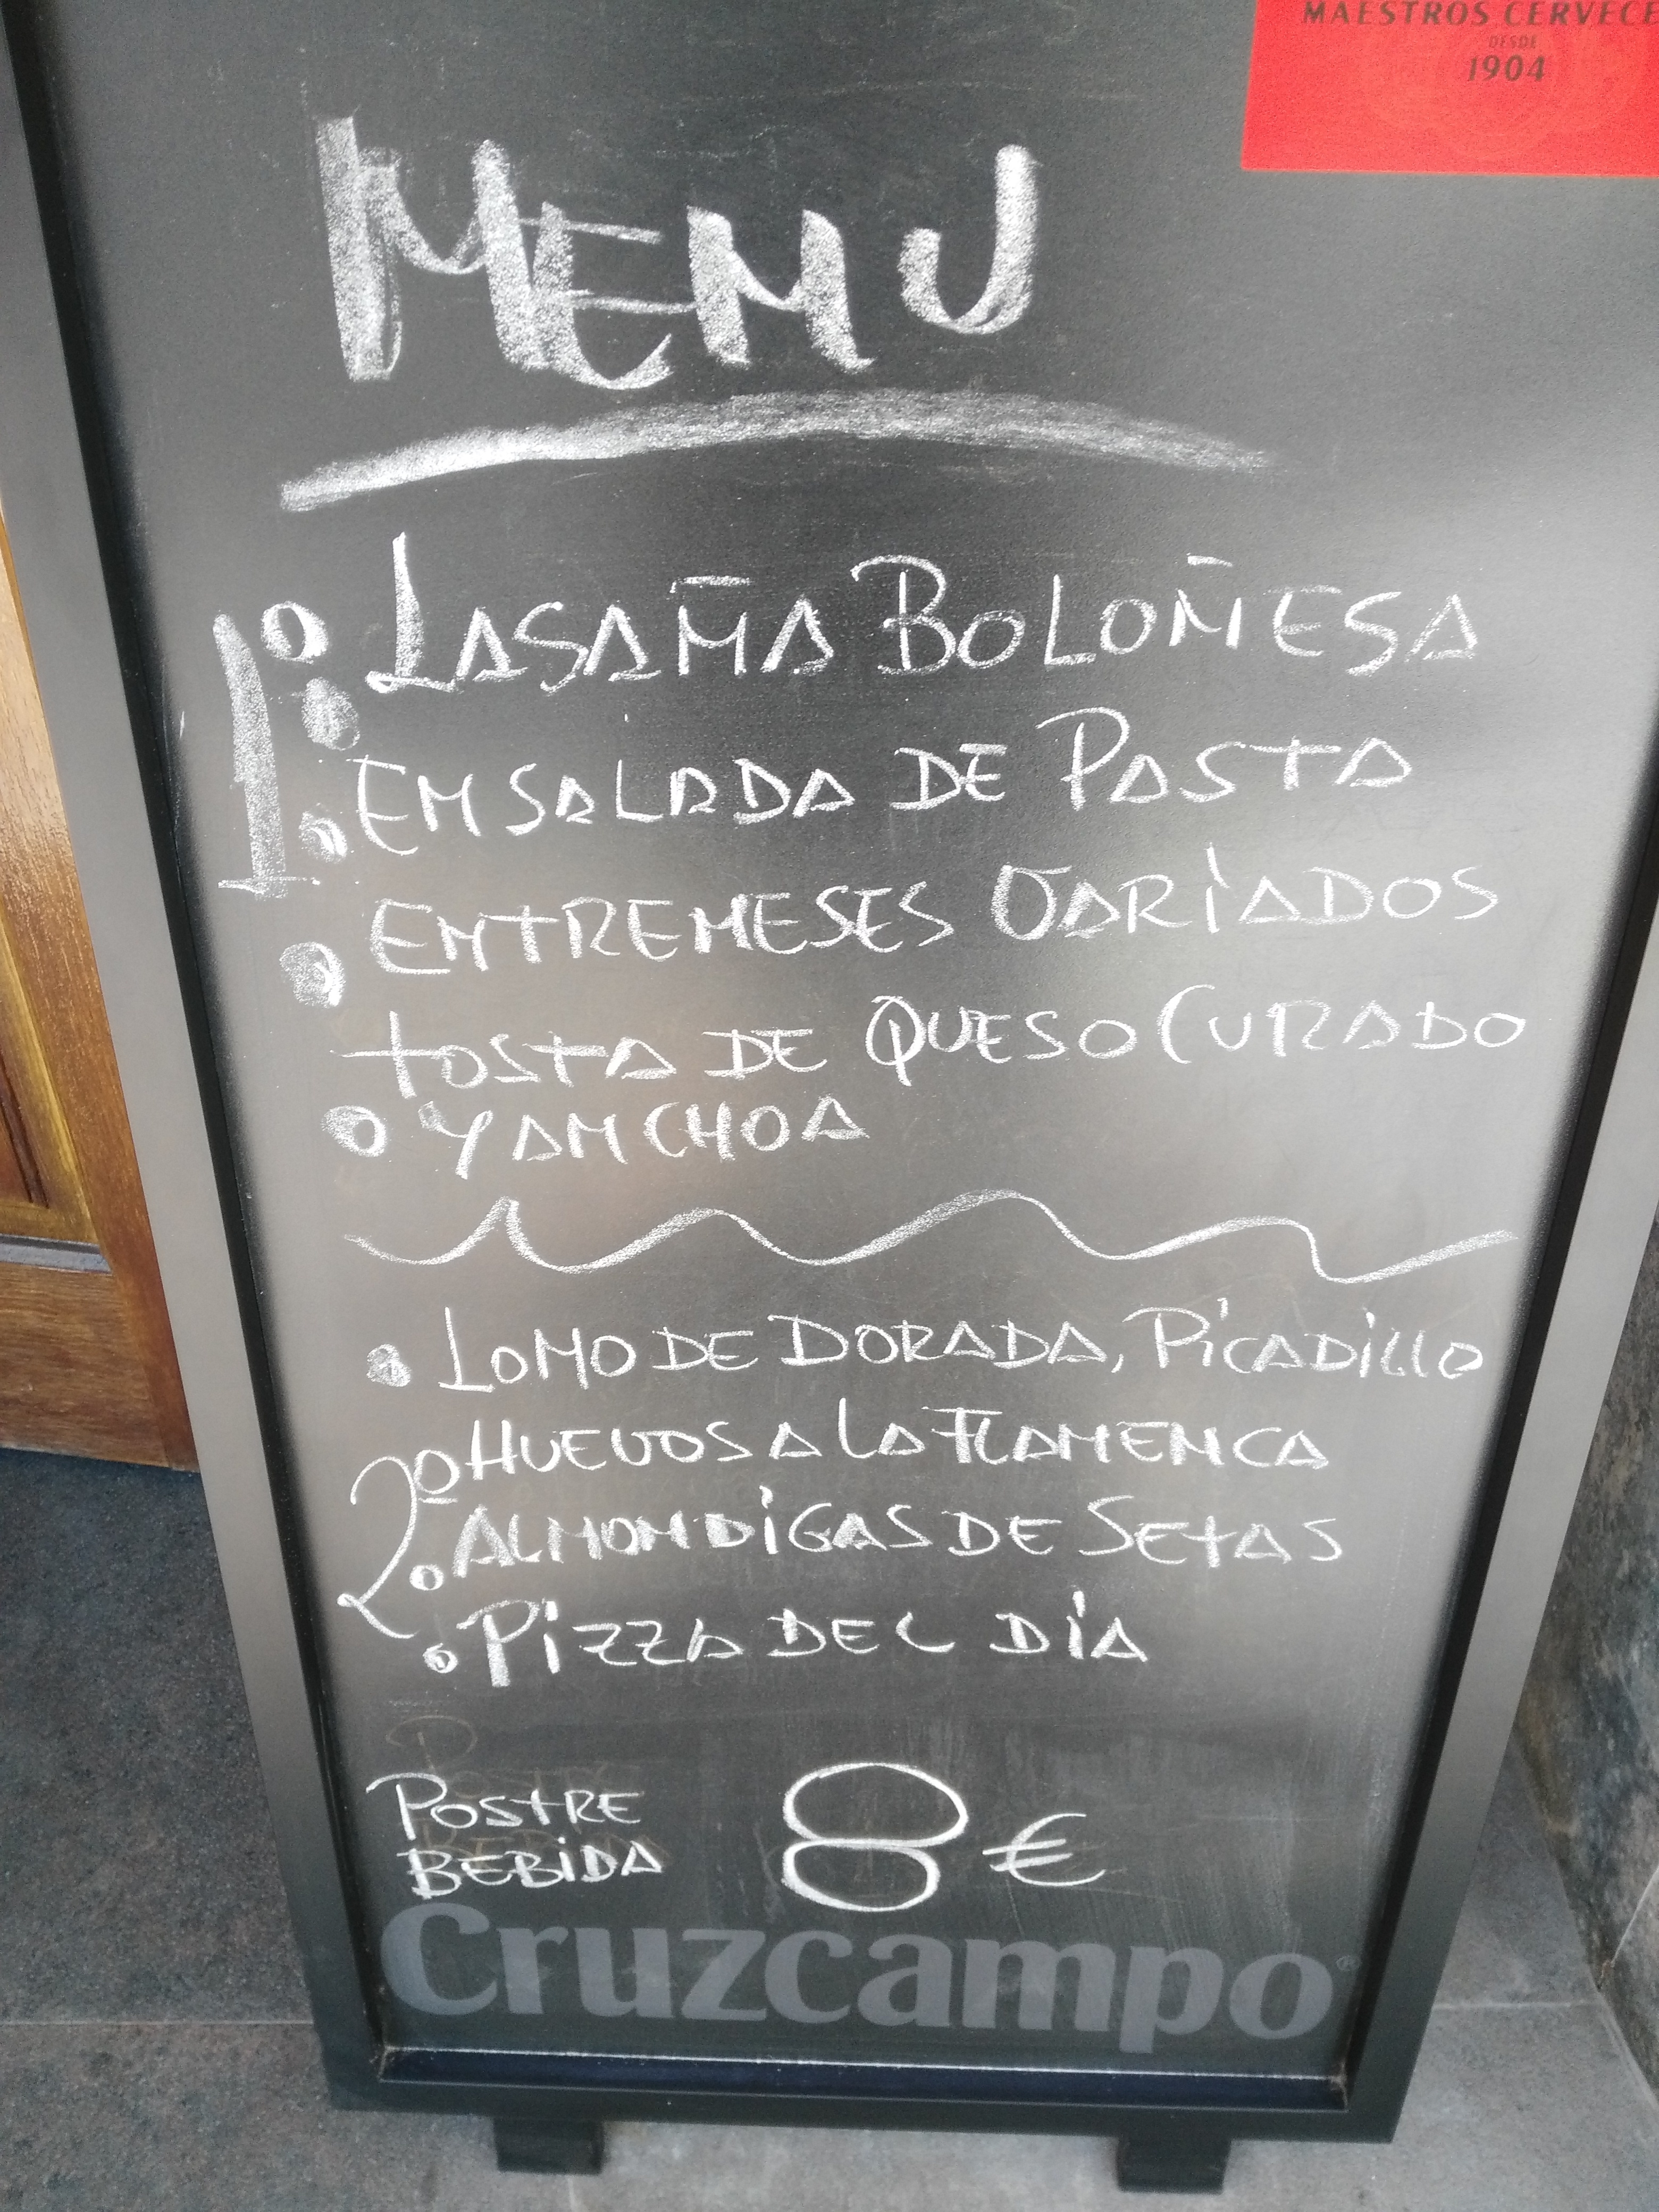 MAESTROS CERVECE
DESDE
1904
MENU
1º
LASAÑA BOLOÑESA
ENSALADA DE PASTA
ENTREMESES VARIADOS
TOSTA DE QUESO CURADO
Y ANCHOA
LOMO DE DORADA, PICADILLO
2º
HUEVOS A LA FLAMENCA
ALMONDIGAS DE SETAS
PIZZA DEL DíA
POSTRE
BEBIDA
8€
Cruzcampo®